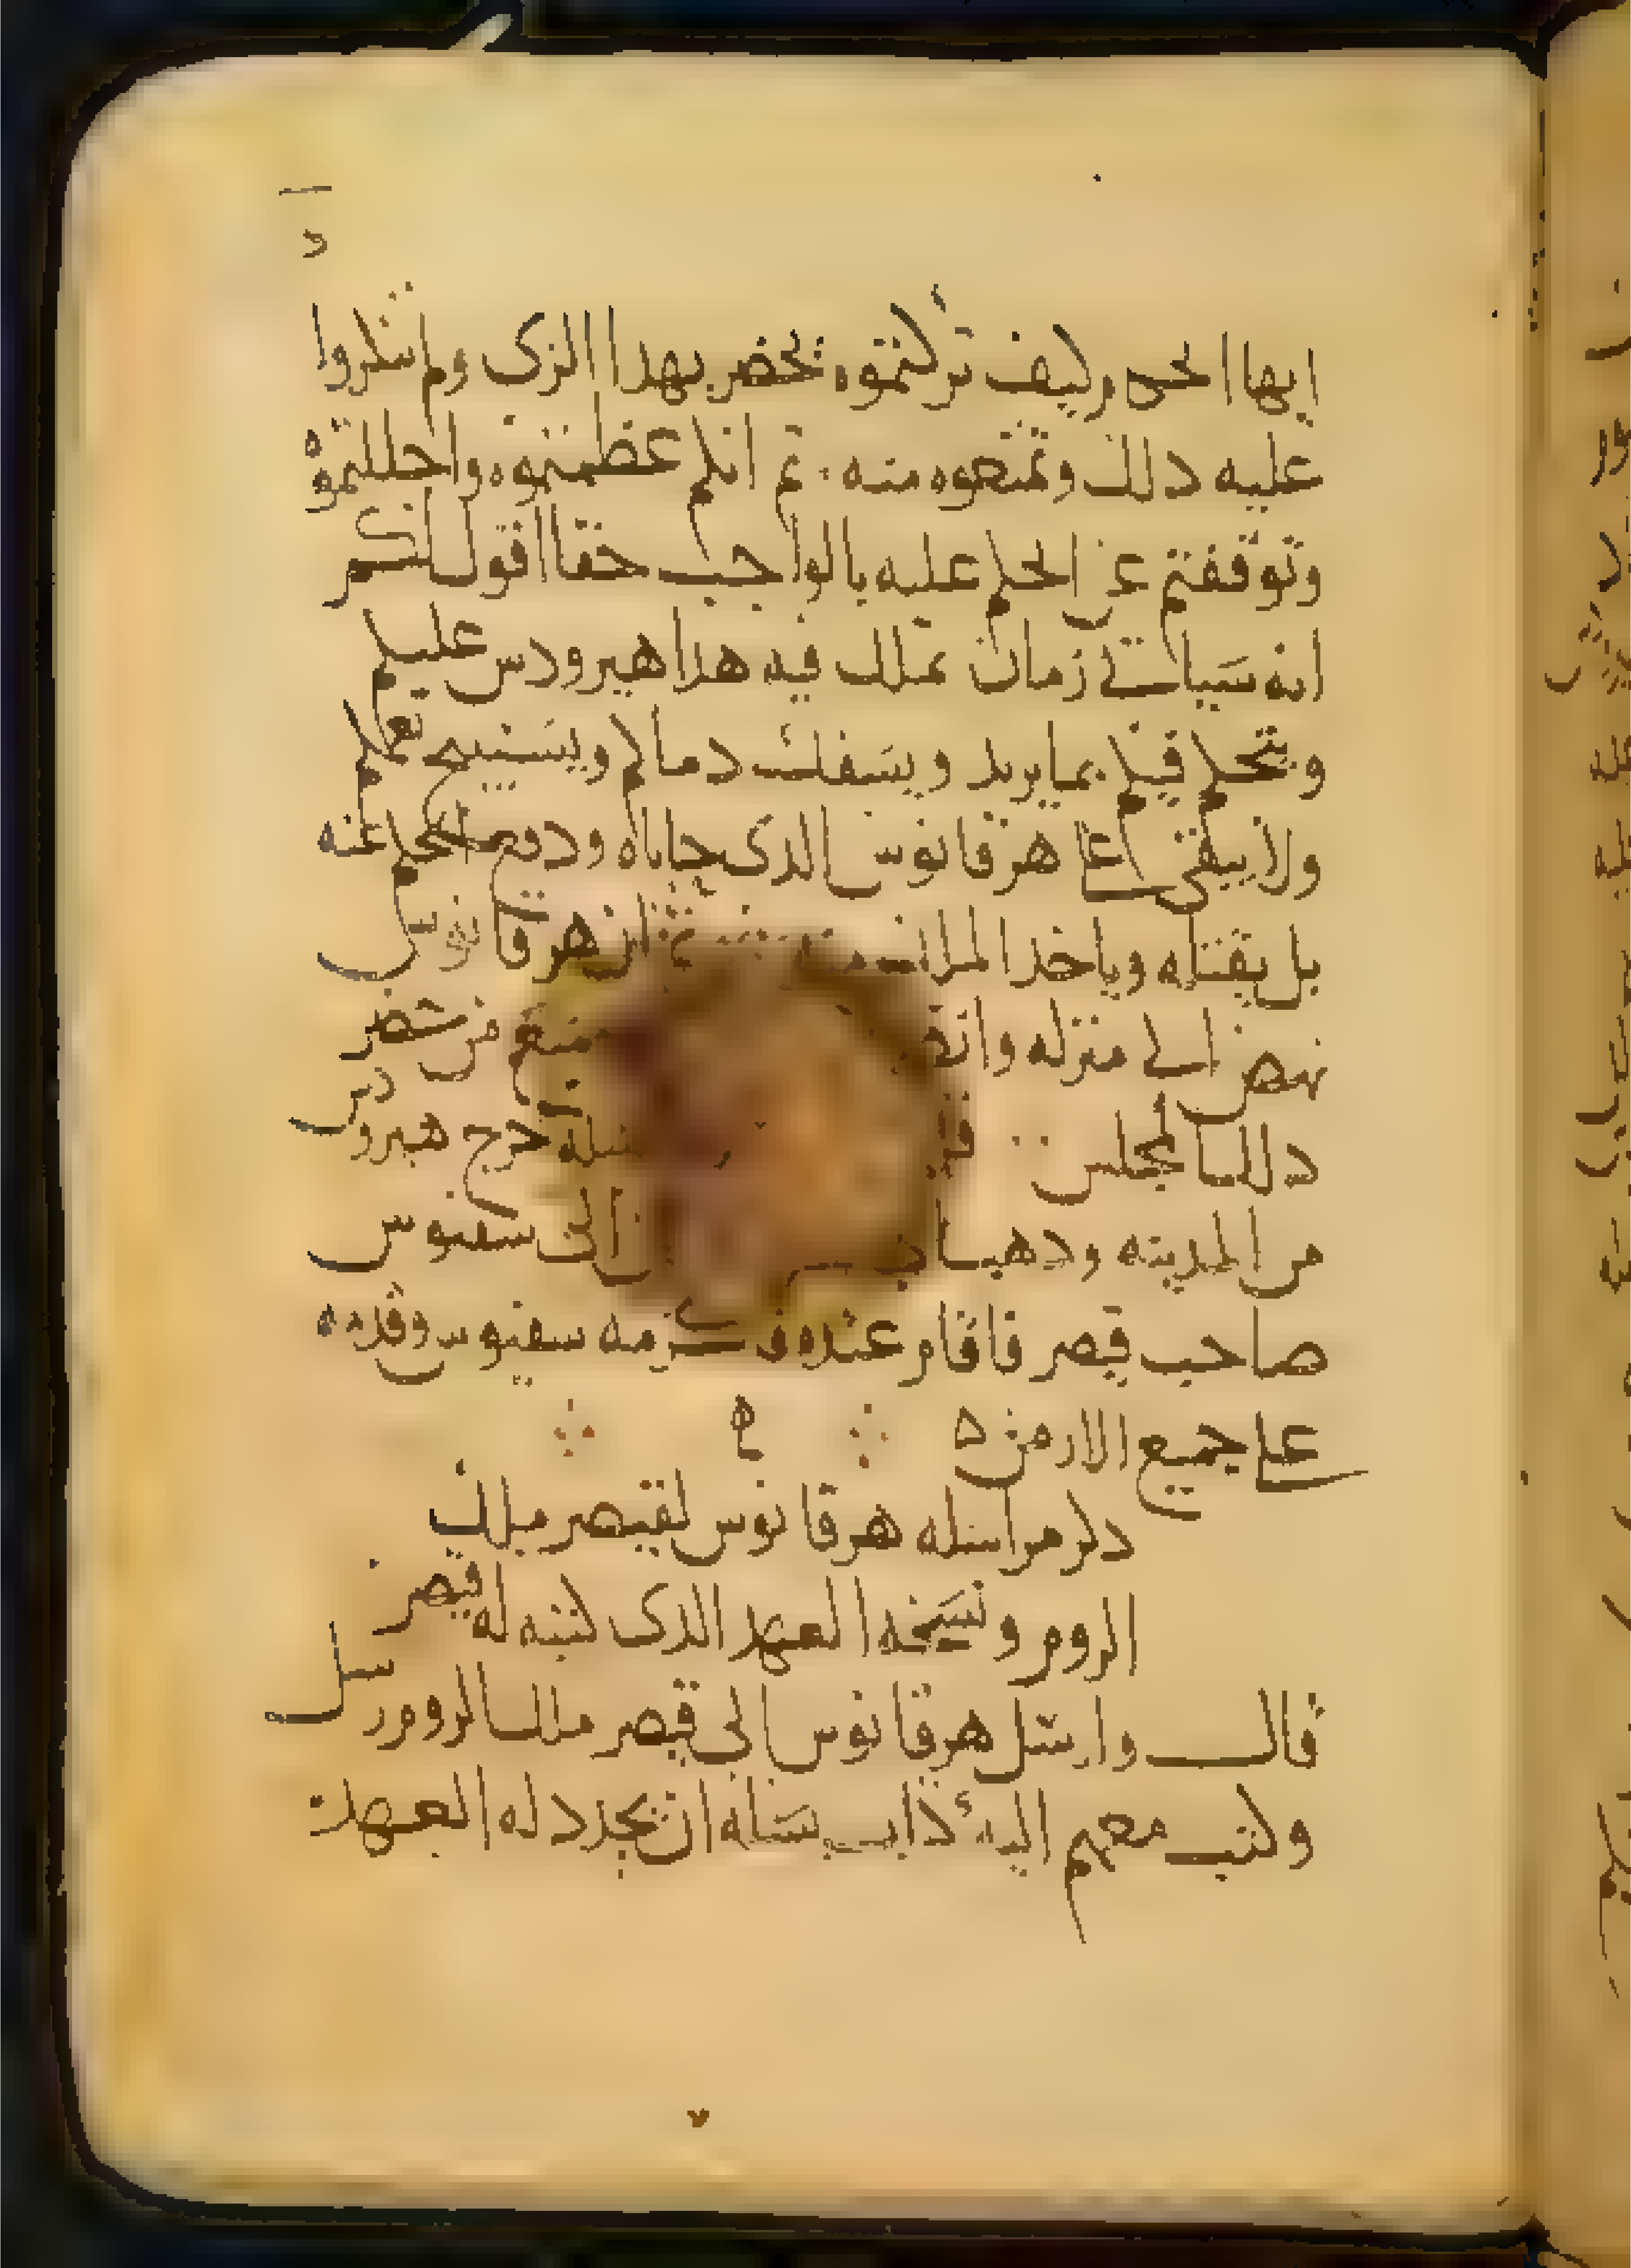 ايها الحي وكيف تركتموه يحضر بهدا الزي ولم تنكروا
عليه دلك وتمنعوه منه ثم انكم عظمتموه واجللتموه
وتوقفتم عن الحكم عليه بالواجب حقا اقول لكم
انه سياتي زمان يملك فيه هدا هيرودس عليكم
ويتحكم فيكم بما يريد ويسفك دماكم ويستبيح
ولا يبقي علي هرقانوس الدي حاباه ودفع الحكم عنه
بل يقتله وياخد الملك منه ثم ان هرقانوس
نهض الي منزله من حضر
دلك المجلس خرج هيرودس
من المدينه ودهب الي سفنيوس
صاحب قيصر فاقام عنده فاكرمه سفنيوس وقدمه
علي جميع الارمن ه
دكر مراسله هرقانوس لقيصر ملك
الروم ونسخه العهد الدي كتبه له قيصر
قال وارسل هرقانوس الي قيصر ملك الروم رسل
وكتب معهم اليه كتاب يساله ان يجدد له العهد